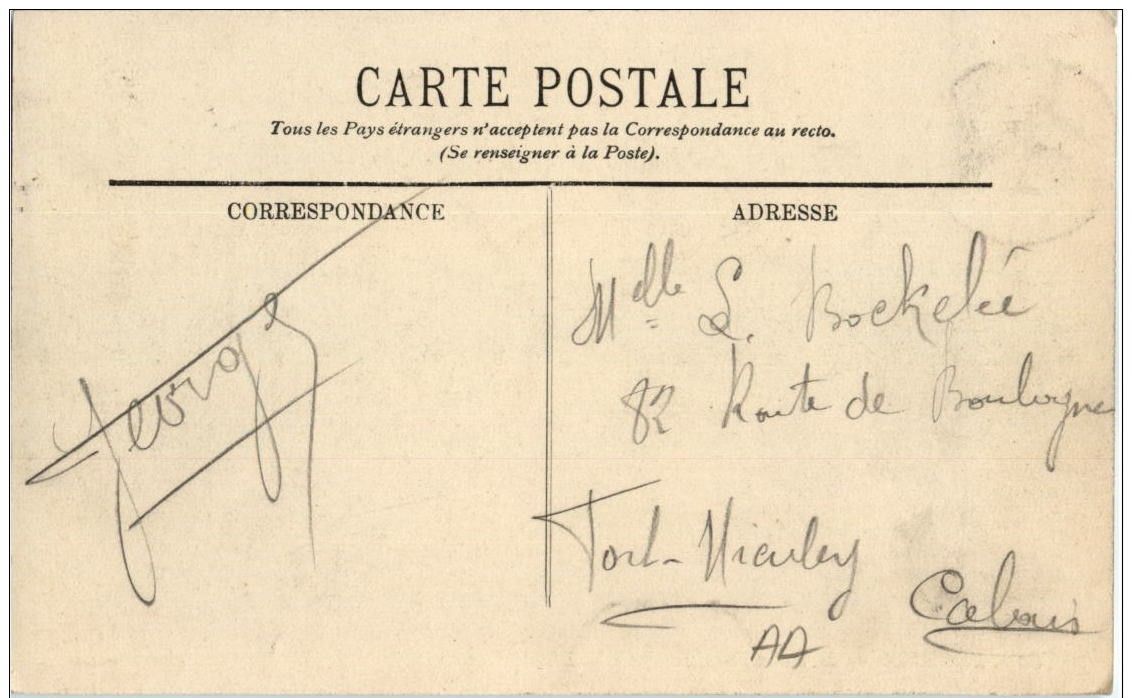 CARTE POSTALE
Tous les Pays étrangers n'acceptent pas la Correspondance au recto.
(Se renseigner à la Poste).
CORRESPONDANCE
Georges
ADRESSE
Melle L. Bockelée
82 Route de Boulogne
Fort-Nieulay
Calais
AA